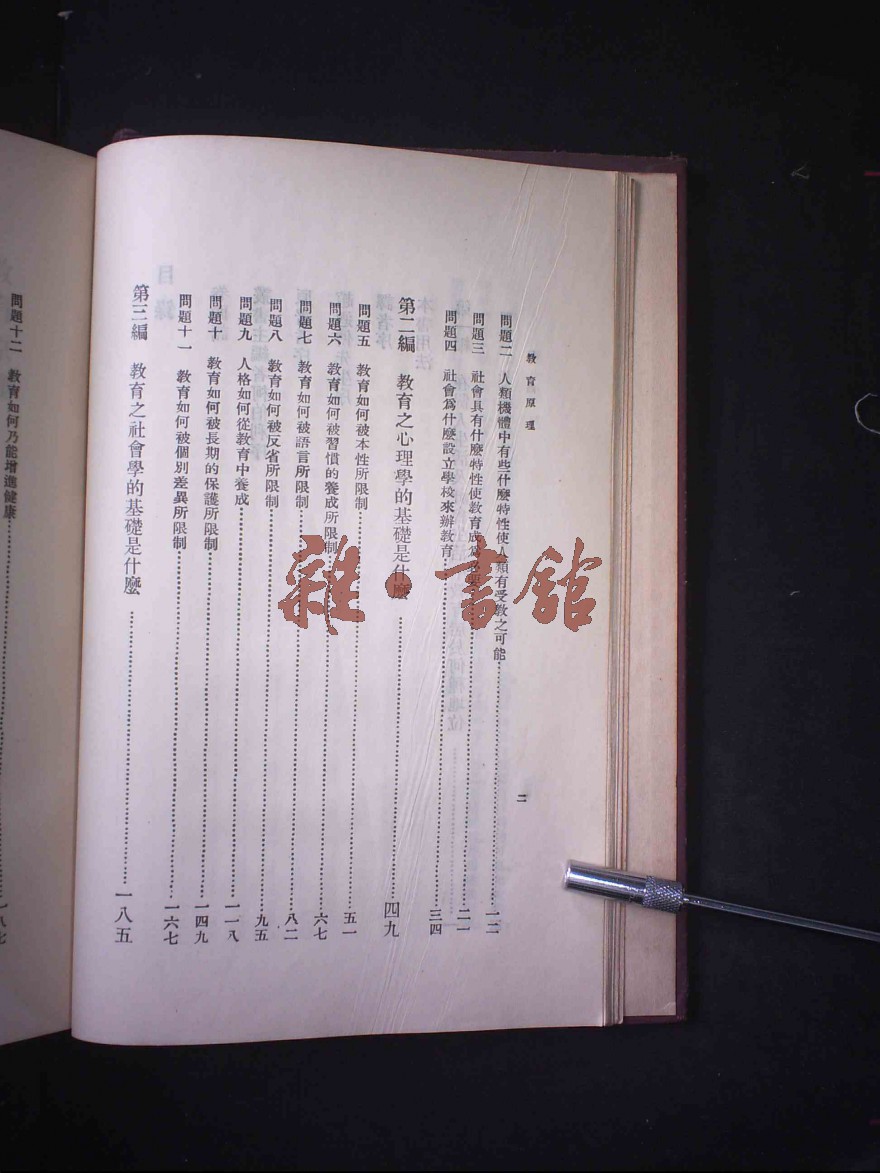 教育原理
二
問題二 人類機體中有些什麼特性使人類有受教之可能……一二
問題三 社會具有什麼特性使教育成爲必要……二一
問題四 社會爲什麼設立學校來辦教育……三四
第二編 教育之心理學的基礎是什麼……四九
問題五 教育如何被本性所限制……五一
問題六 教育如何被習慣的養成所限制……六七
問題七 教育如何被語言所限制……八二
問題八 教育如何被反省所限制……九五
問題九 人格如何從教育中養成……一一八
問題十 教育如何被長期的保護所限制……一四九
問題十一 教育如何被個別差異所限制……一六七
第三編 教育之社會學的基礎是什麼……一八五
問題十二 教育如何乃能增進健康……一八七
雜·書館